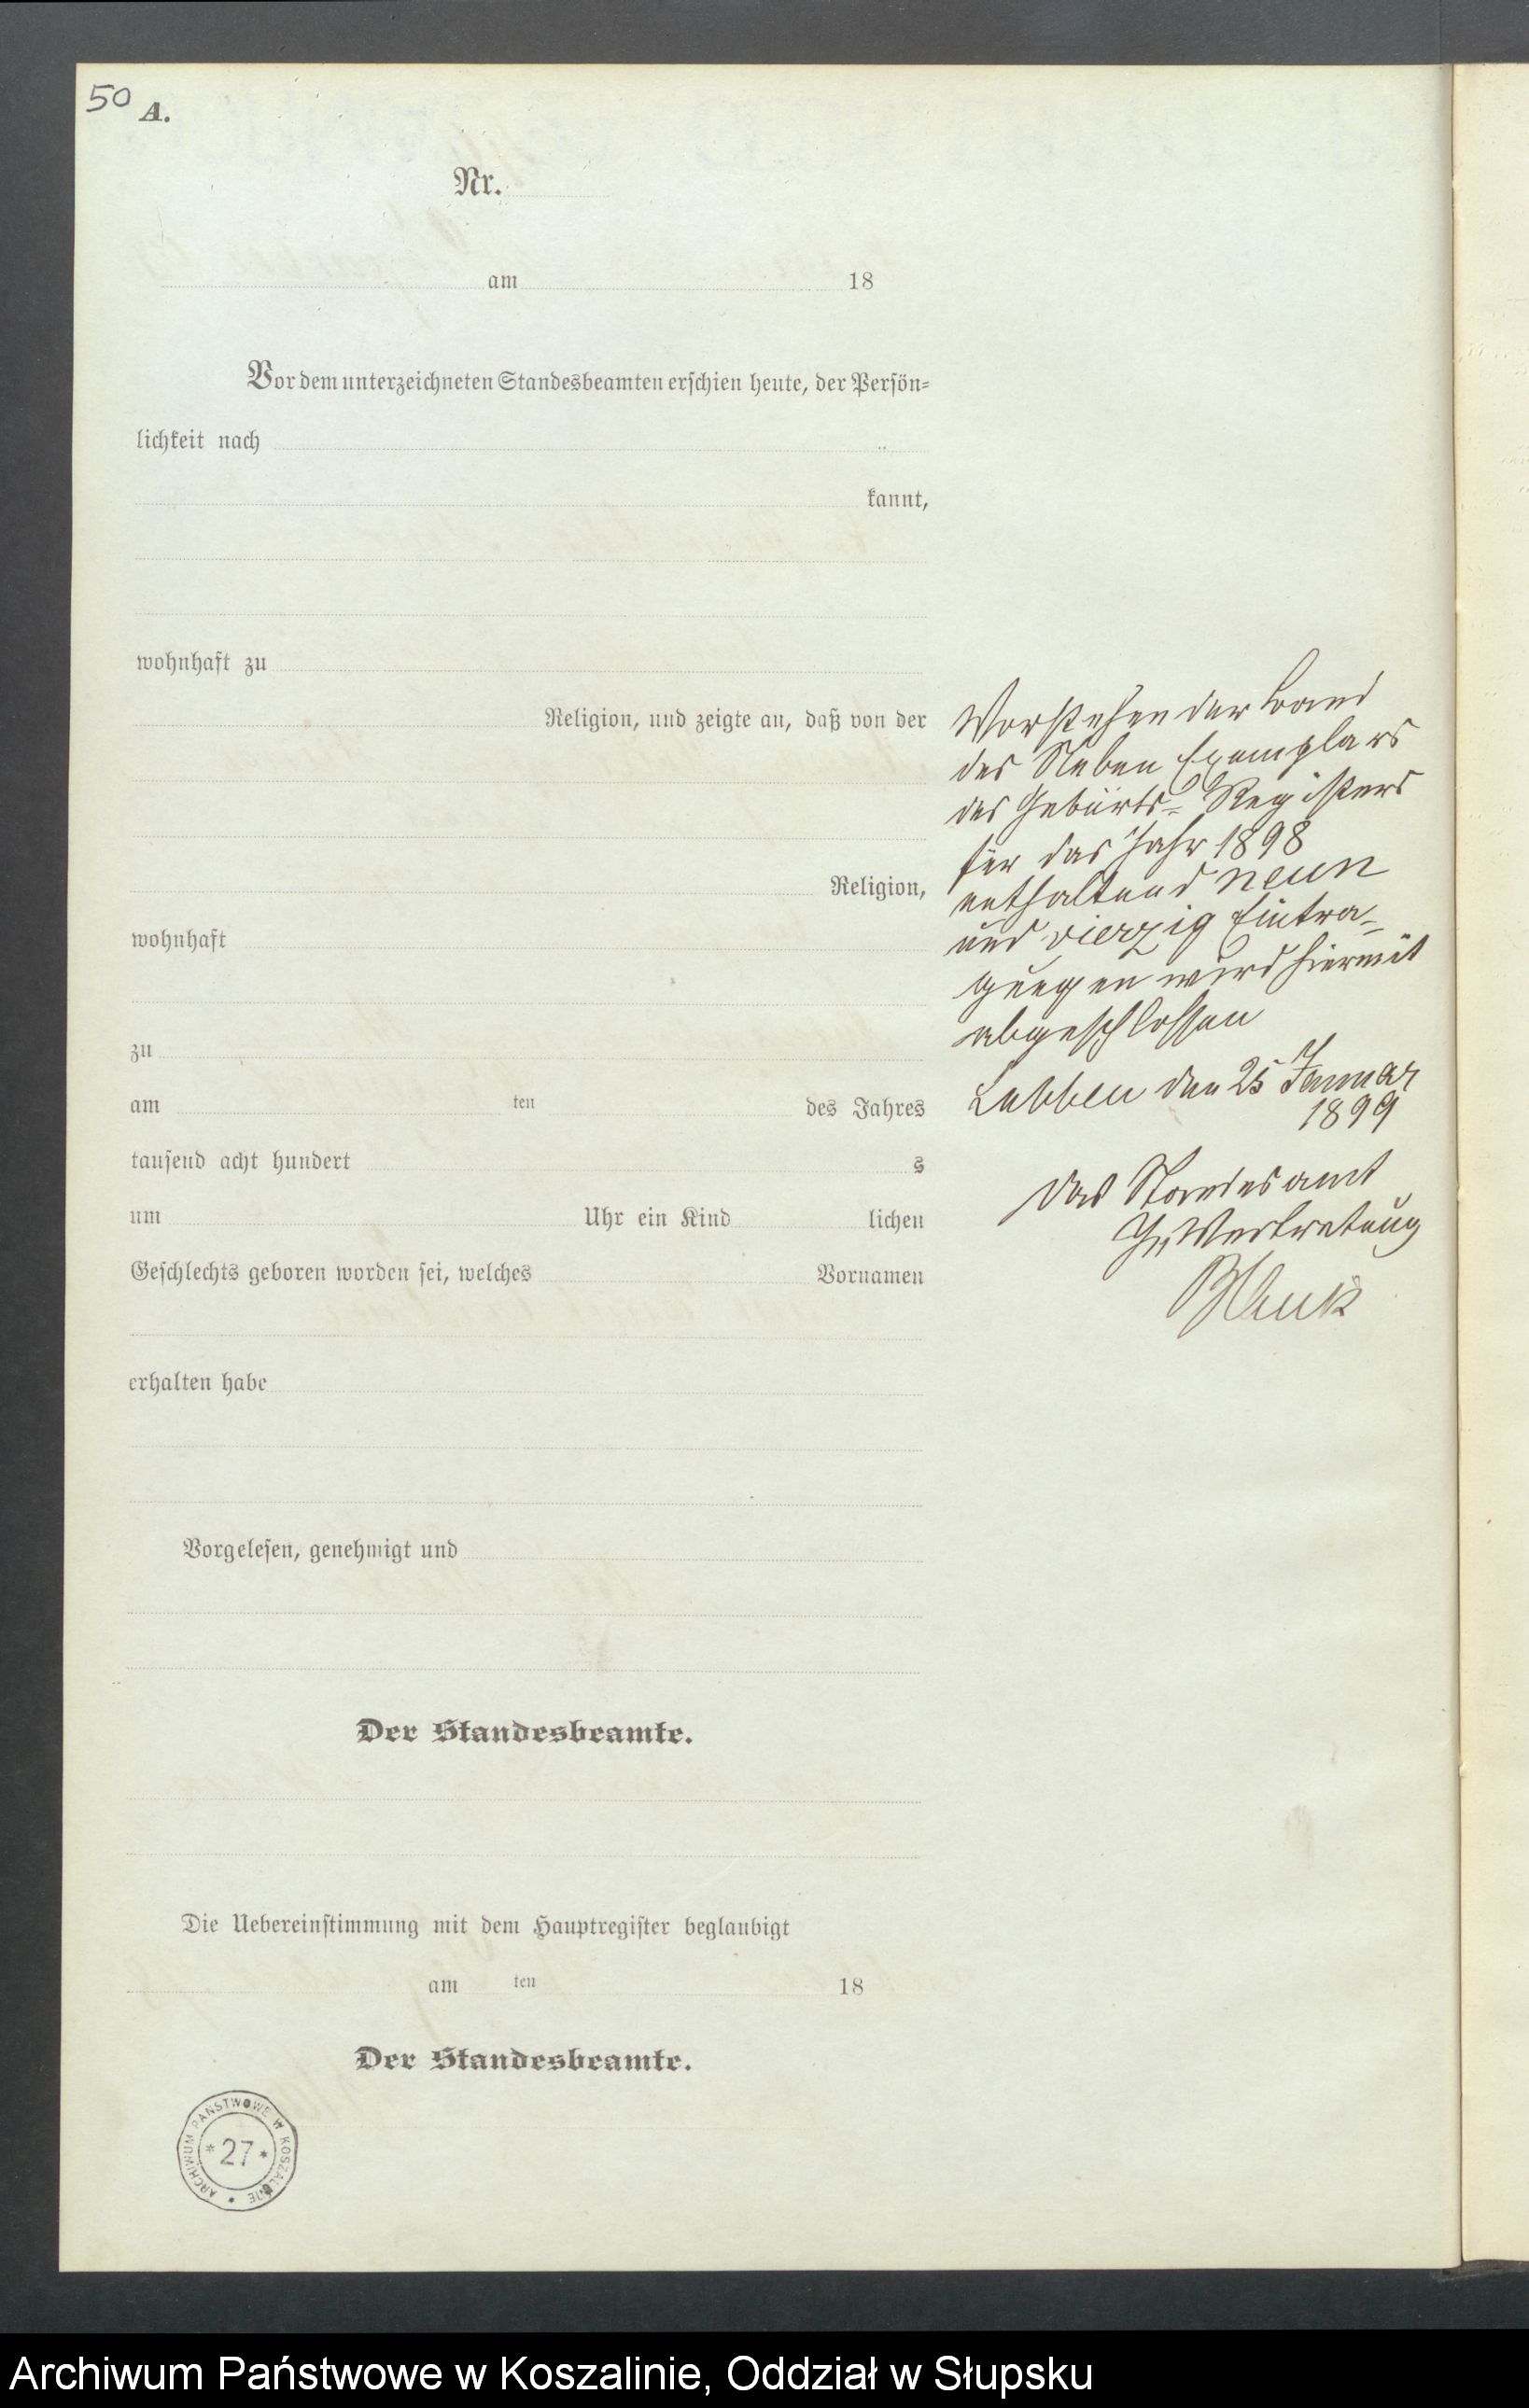 50 A.
Nr.
am 18
Vor dem unterzeichneten Standesbeamten erschien heute, der Persön=
lichkeit nach
kannt,
wohnhaft zu
Religion, und zeigte an, daß von der
Religion,
wohnhaft
zu
am ten des Jahres
tausend acht hundert s
um Uhr ein Kind lichen
Geschlechts geboren worden sei, welches Vornamen
erhalten habe
Vorgelesen, genehmigt und
Der Standesbeamte.
Die Uebereinstimmung mit dem Hauptregister beglaubigt
am ten 18
Der Standesbeamte.
Vorstehender Band
des Neben Exemplars
des Geburts= Registers
für das Jahr 1898
enthaltend neun
und vierzig Eintra=
gungen wird hiermit
abgeschlossen
Labben den 25 Januar
1899
Das Standesamt
In Vertretung
ARCHIWUM PAŃSTWOWE W KOSZALINIE
* 27 *
Archiwum Państwowe w Koszalinie, Oddział w Słupsku